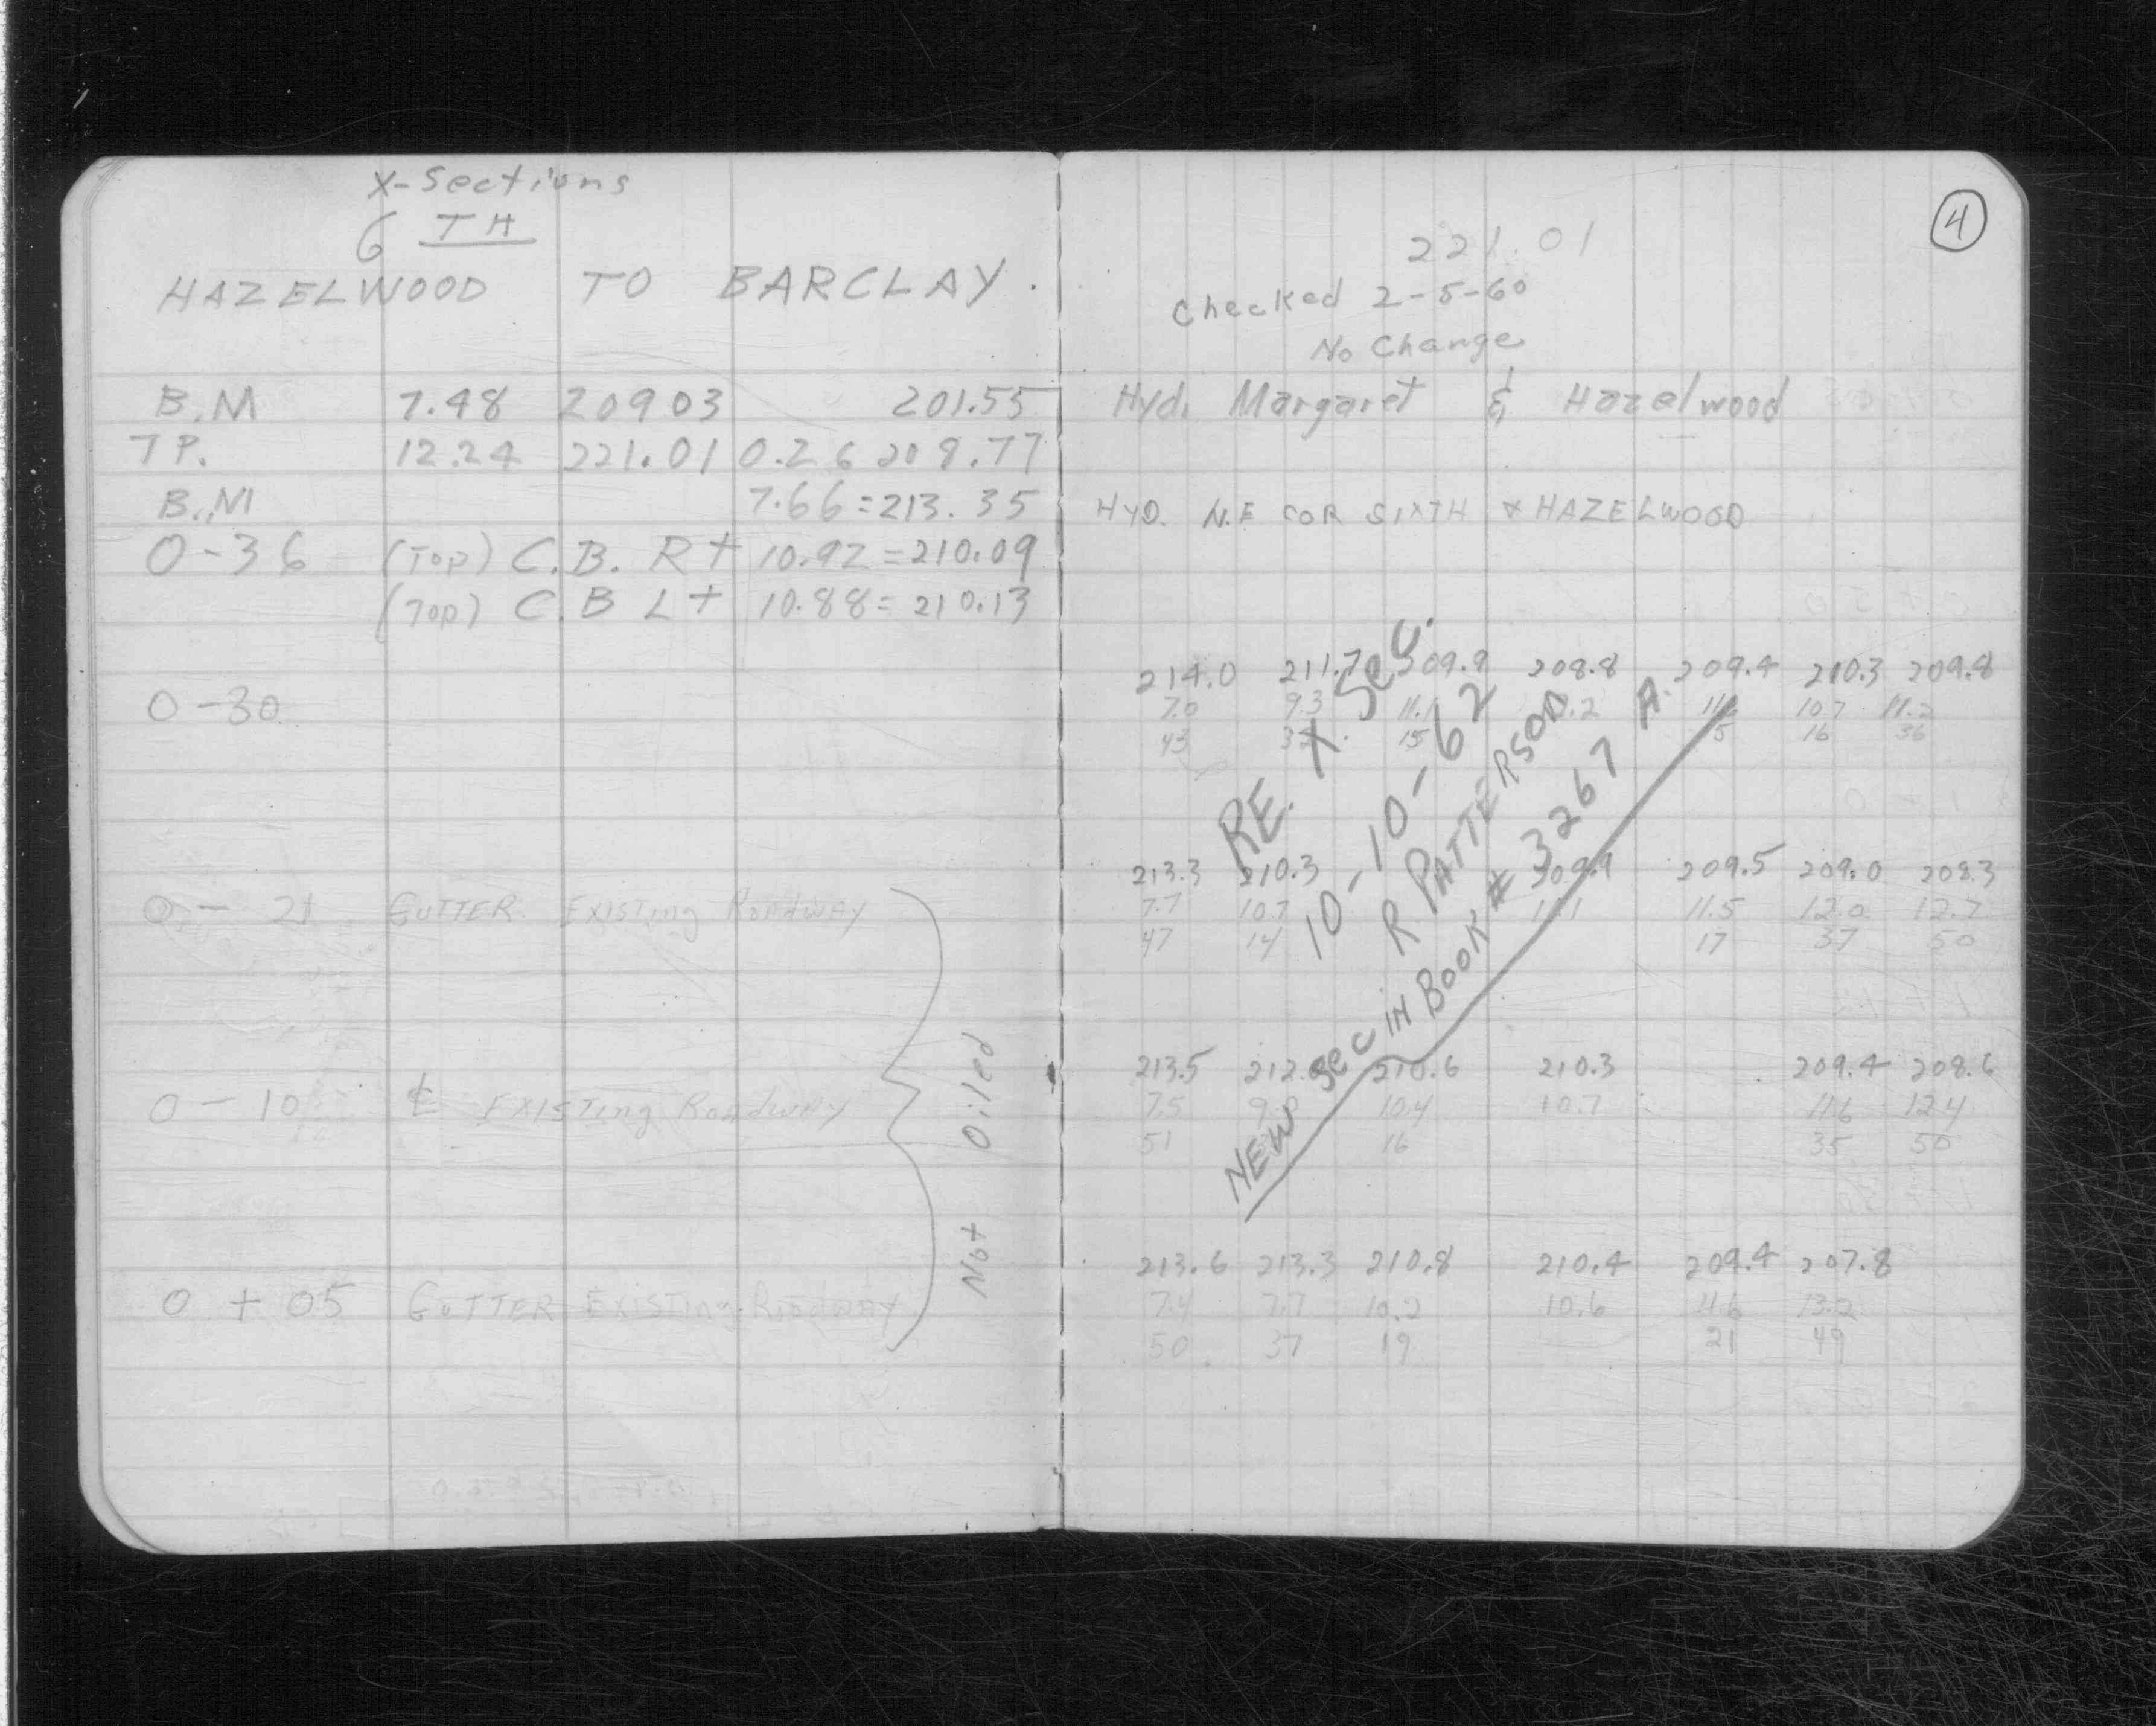 X-Sections
6 TH
HAZELWOOD TO BARCLAY.
B.M 7.48 20903 201.55
T P. 12.24 221.01 0.26 208.77
B.M 7.66=213.35
0-36 (Top) C.B. Rt 10.92=210.09
(Top) C.B Lt 10.88=210.13
0-30
0-21 GUTTER EXISTING ROADWAY
0-10 ℄ EXISTING ROADWAY
0+05 GUTTER EXISTING ROADWAY
Not Oiled
4
221.01
Checked 2-5-60
No Change
Hyd. Margaret & Hazelwood
HYD. N.E COR SIXTH & HAZELWOOD
214.0 211.7 209.9 208.8 209.4 210.3 209.8
7.0 9.3 11.1 10.7 11.2
43 15 5 16 36
213.3 210.3 209.9 209.5 209.0 208.3
7.7 10.7 11.1 11.5 12.0 12.7
47 14 17 37 50
213.5 210.6 210.3 209.4 208.6
7.5 10.4 10.7 11.6 12.4
51 16 35 50
213.6 213.3 210.8 210.4 209.4 207.8
7.4 7.7 10.2 10.6 11.6 13.2
50 37 19 21 49
RE. X Sec.
10-10-62
R PATTERSON
NEW Sec IN BOOK # 3267 A.